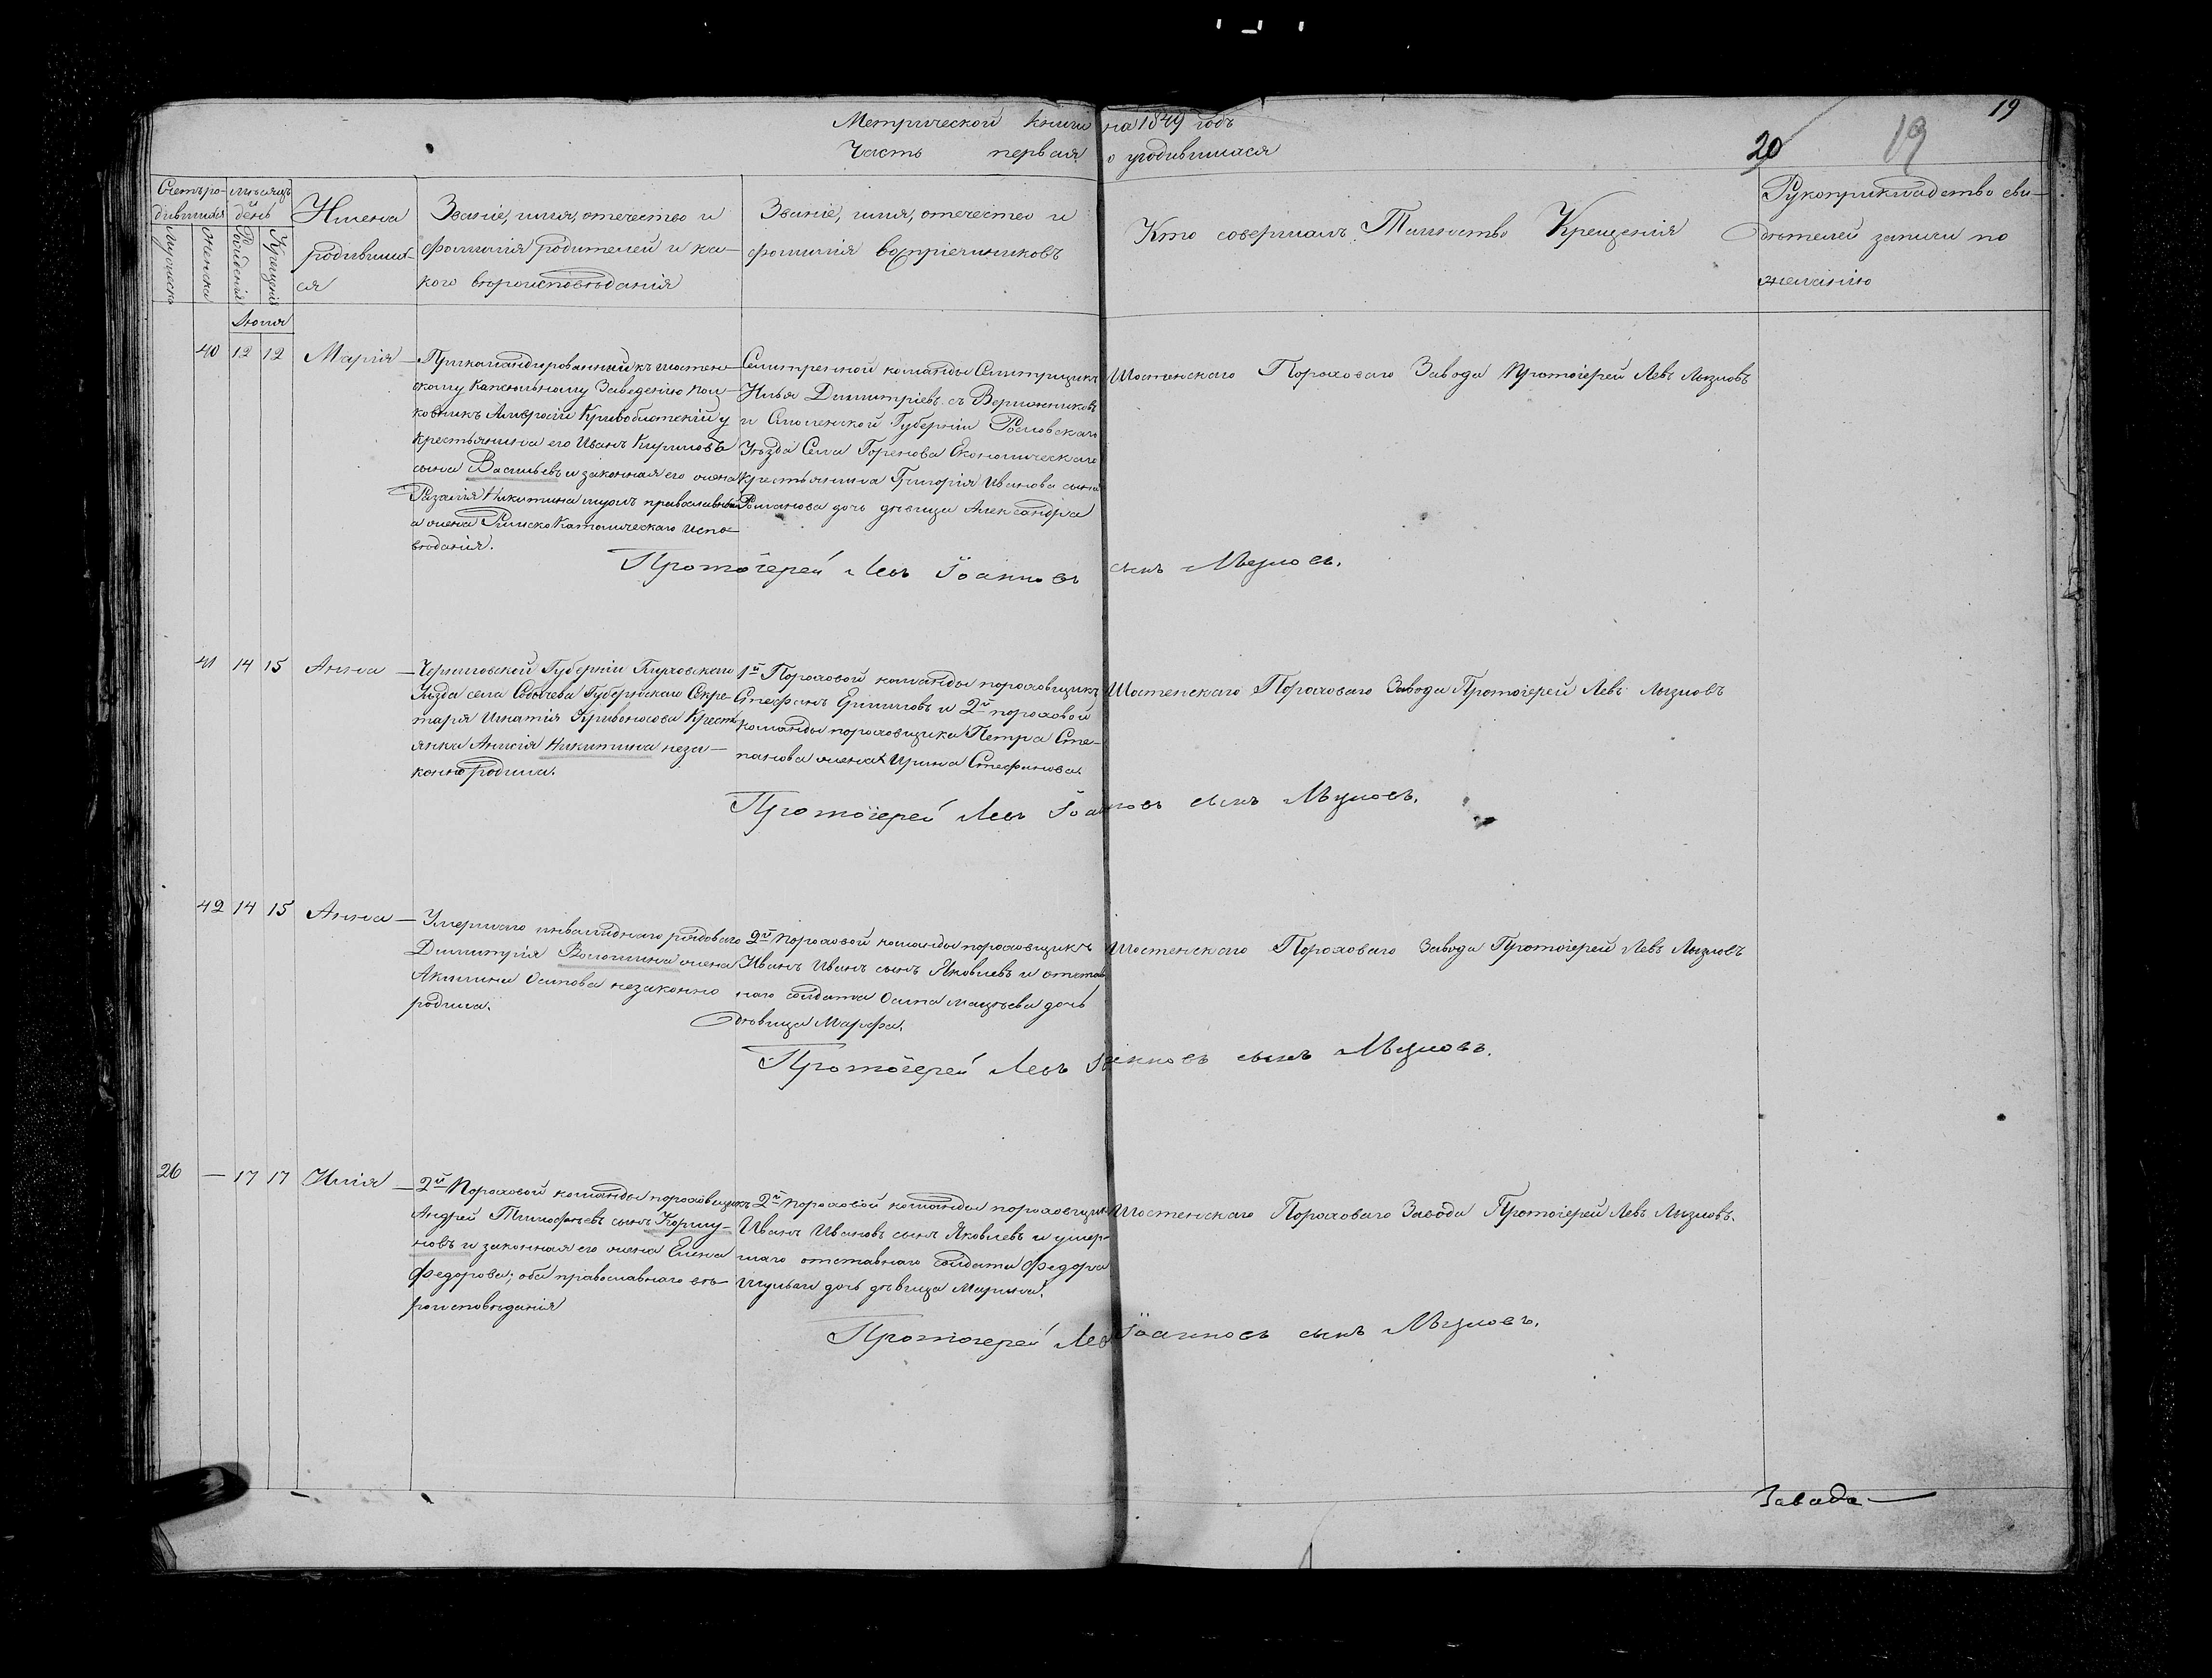 19
19
20
Метрической книги на 1849 годъ
Часть первая о родившихся
Счетъ ро-
дившихся
Мужеска
Женска
Мѣсяцъ
и
день
Рожденія
Крещенія
Имена
родивших-
ся
Званіе, имя, отечество и
фамилія родителей и ка-
кого вѣроисповѣданія
Званіе, имя, отечество и
фамилія воспріемниковъ
Кто совершалъ Таинство Крещенія
Рукоприкладство сви-
дѣтелей записи по
желанію
Іюля
40 12 12 Марія
Прикомандированный къ Шостен-
скому Капсюльному Заведенію пол-
ковникъ Амвросій Кривоблотскій у
крестьянина его Иванъ Кириловъ
сына Васильевъ и законная его жена
Розалія Никитина мужъ православнаго
а жена Римско Католическаго испо-
вѣданія.
Селитренной команды Селитрщикъ
Илья Димитріевъ съ Вержниковъ
и Смоленской Губерніи Рословскаго
Уѣзда Села Горенова Економическаго
крестьянина Григорія Иванова сына
Романова дочь дѣвица Александра
Шостенскаго Пороховаго Завода Протоіерей Левъ Лызловъ
Протоіерей Левъ Іоанновъ сынъ Лызловъ.
41 14 15 Анна
Черниговской Губерніи Глуховскаго
Уѣзда села Собычева Губернскаго Секре-
таря Игнатія Кривоносова Кресть-
янка Анисія Никитина неза-
конно родила.
1й Пороховой команды пороховщикъ
Стефанъ Ермиловъ и 2й пороховой
команды пороховщика Петра Сте-
панова жена Ирина Стефанова.
Шостенскаго Пороховаго Завода Протоіерей Левъ Лызловъ
Протоіерей Левъ Іоанновъ сынъ Лызловъ.
42 14 15 Анна
Умершаго инвалиднаго рядоваго
Димитрія Волошина жена
Акилина Осипова незаконно
родила.
2й пороховой команды пороховщикъ
Иванъ Иванъ сынъ Яковлевъ и отстав
наго солдата Осипа Мацѣева дочь
дѣвица Марфа.
Шостенскаго Пороховаго Завода Протоіерей Левъ Лызловъ
Протоіерей Левъ Іоанновъ сынъ Лызловъ.
26 — 17 17 Илія
2й Пороховой команды пороховщикъ
Андрей Тимофѣевъ сынъ Коршу-
новъ и законная его жена Елена
Федорова; оба православнаго вѣ-
роисповѣданія
2й пороховой команды пороховщикъ
Иванъ Ивановъ сынъ Яковлевъ и умер-
шаго отставнаго солдата Федора
Шульги дочь дѣвица Марина.
Шостенскаго Пороховаго Завода Протоіерей Левъ Лызловъ.
Протоіерей Левъ Іоанновъ сынъ Лызловъ.
Завода